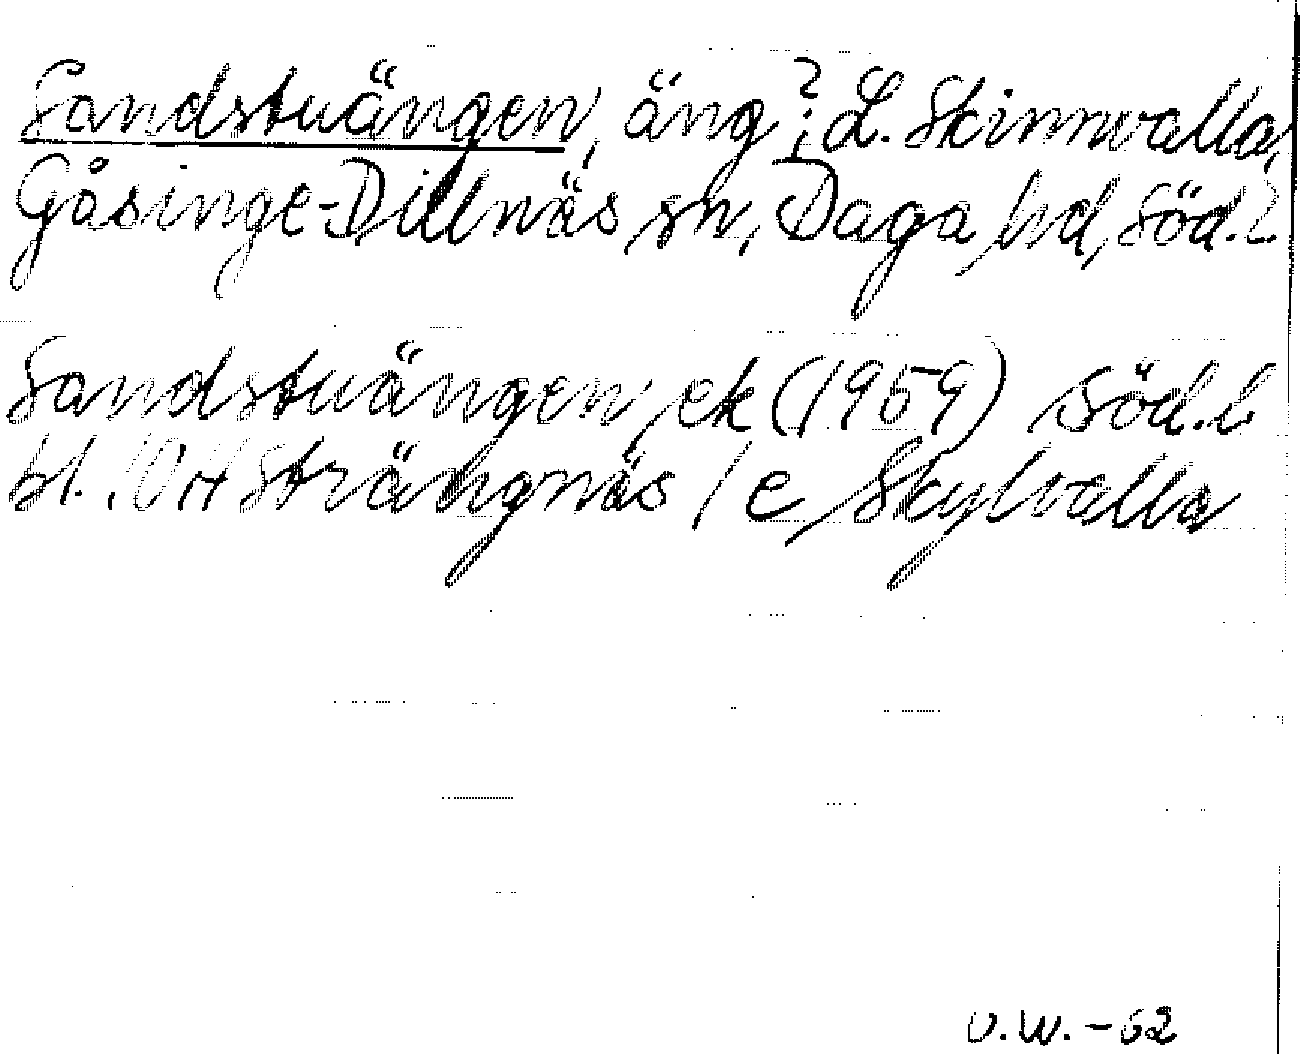 Sandstuängen, äng?; L. Skinnvalla,
Gåsinge-Dillnäs sn, Daga hd, Söd.l.
Sandstuängen, ek (1959) Söd.l.
bl. 10H Strängnäs / e Skylvalla
U.W. -62